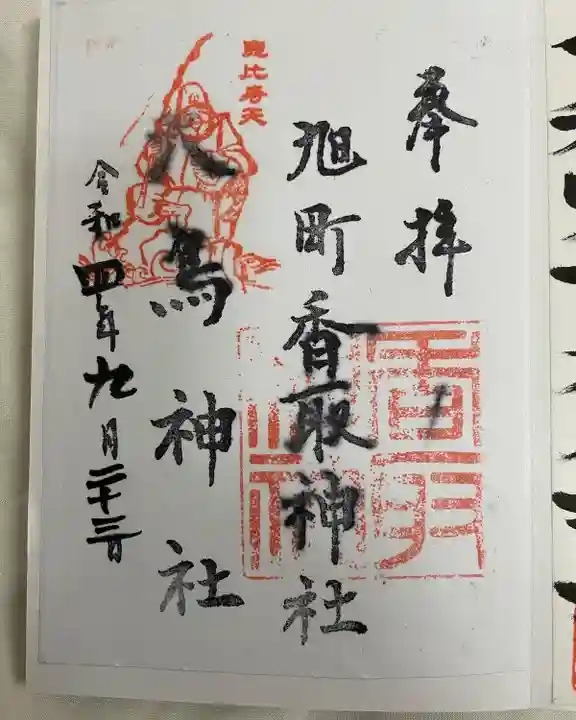 奉拝
旭町香取神社
恵比寿天
大鳥神社
令和四年九月二十三日
香取
神社